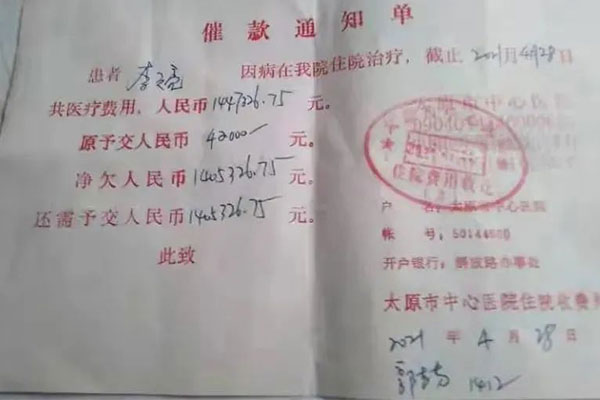 催款通知单
患者 李 因病在我院住院治疗，截止 2021年4月28日
共医疗费用，人民币 1447326.75 元。
原予交人民币 42000 元。
净欠人民币 1405326.75 元。
还需予交人民币 1405326.75 元。
此致
太原市中心医院
住院费用
户 名：太原市中心医院
帐 号：50144600
开户银行：解放路办事处
太原市中心医院住院收费
2021 年 4 月 28 日
1412